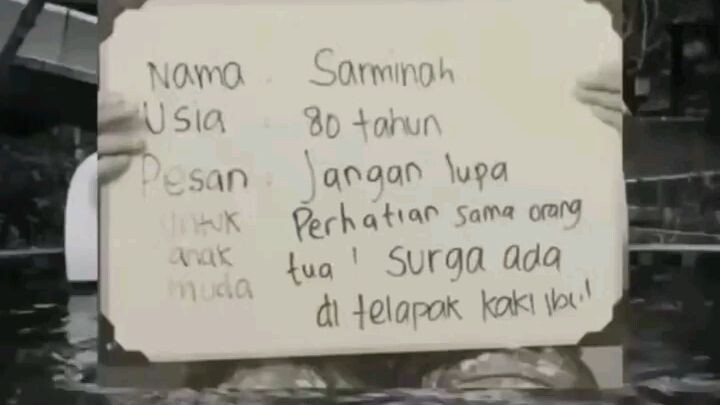 Nama . Sarminah
Usia . 80 tahun
Pesan . Jangan lupa
untuk Perhatian sama orang
anak tua! Surga ada
muda di telapak kaki ibu!